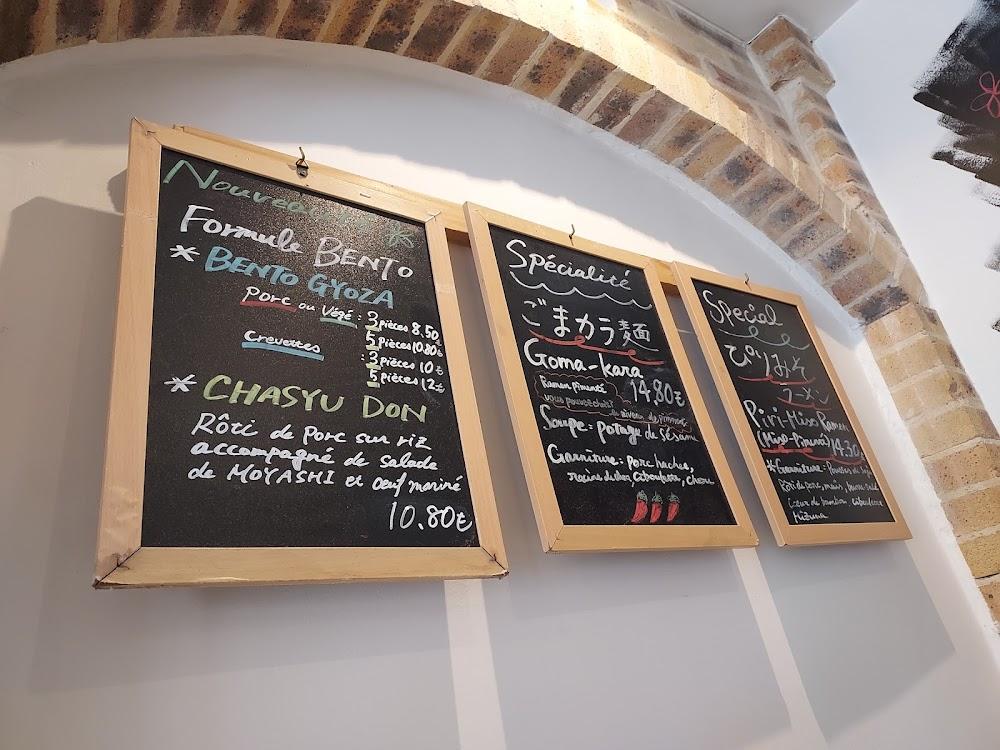 Nouveauté
Formule BENTO
* BENTO GYOZA
Porc ou Végé : 3 pièces 8.50
5 pièces 10.80€
Crevettes : 3 pièces 10€
5 pièces 12€
* CHASYU DON
Rôti de Porc sur riz
accompagné de salade
de MOYASHI et oeuf mariné
10.80€
Spécialité
ごまカラ麺
Goma-kara
Ramen pimenté 14,80€
vous pouvez choisir le niveau de piment
Soupe : potage de sésame
Garniture : porc haché,
ciboulette, chou
Special
ぴりみそ
ラーメン
Piri-Miso Ramen
(Miso-Pimenté) 14.30
*Garniture : Pousses de Soja
Rôti de porc, maïs,
Cœur de bambou, ciboulette
Mizuna